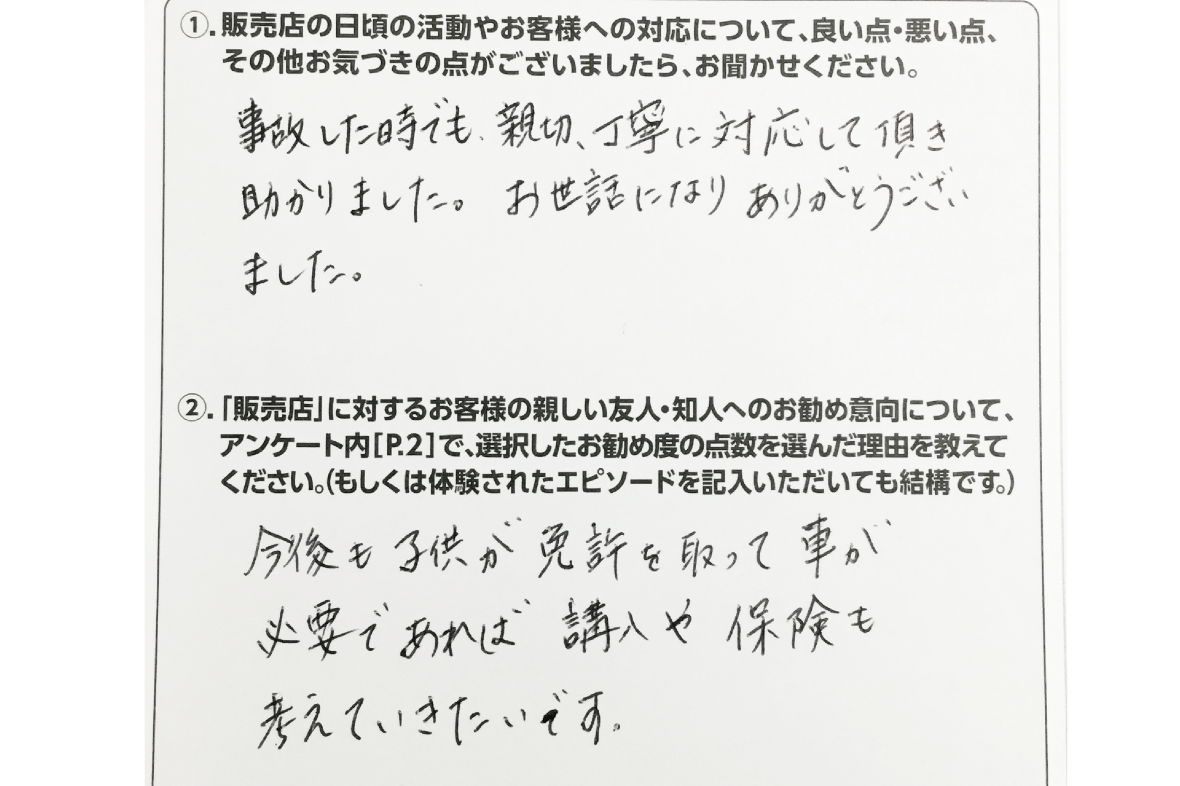 ①. 販売店の日頃の活動やお客様への対応について、良い点・悪い点、
その他お気づきの点がございましたら、お聞かせください。
事故した時でも、親切、丁寧に対応して頂き
助かりました。お世話になりありがとうござい
ました。
②. 「販売店」に対するお客様の親しい友人・知人へのお勧め意向について、
アンケート内[P.2]で、選択したお勧め度の点数を選んだ理由を教えて
ください。(もしくは体験されたエピソードを記入いただいても結構です。)
今後も子供が免許を取って車が
必要であれば講入や保険も
考えていきたいです。